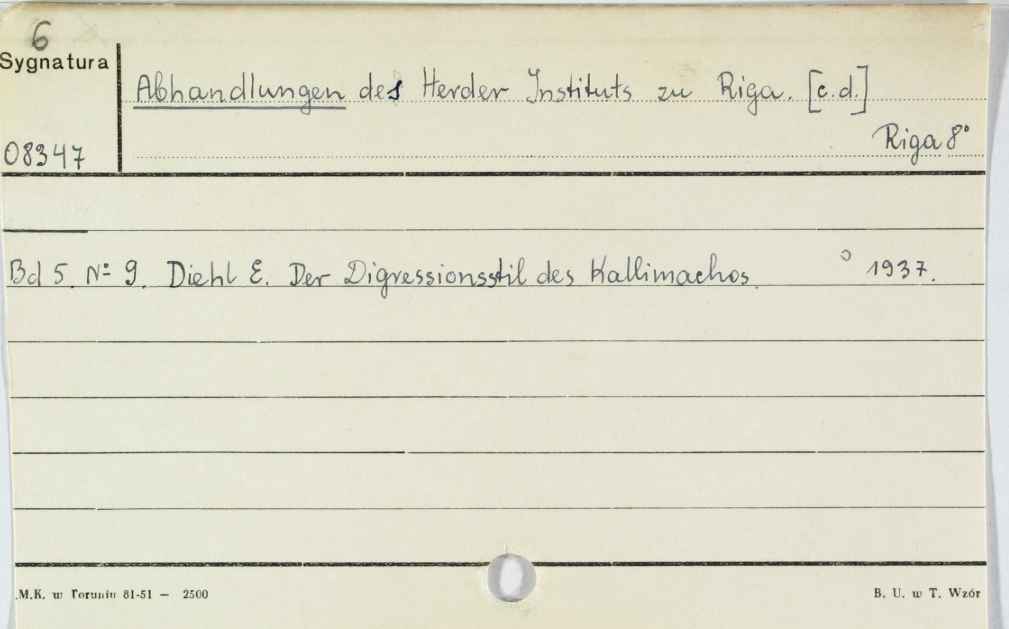 6
Sygnatura
Abhandlungen des Herder Instituts zu Riga. [c.d.]
Riga 8°
08347
Bd 5. № 9. Diehl E. Der Digressionsstil des Kallimachos. ° 1937.
.M.K. w Toruniu 81-51 — 2500
B. U. w T. Wzór